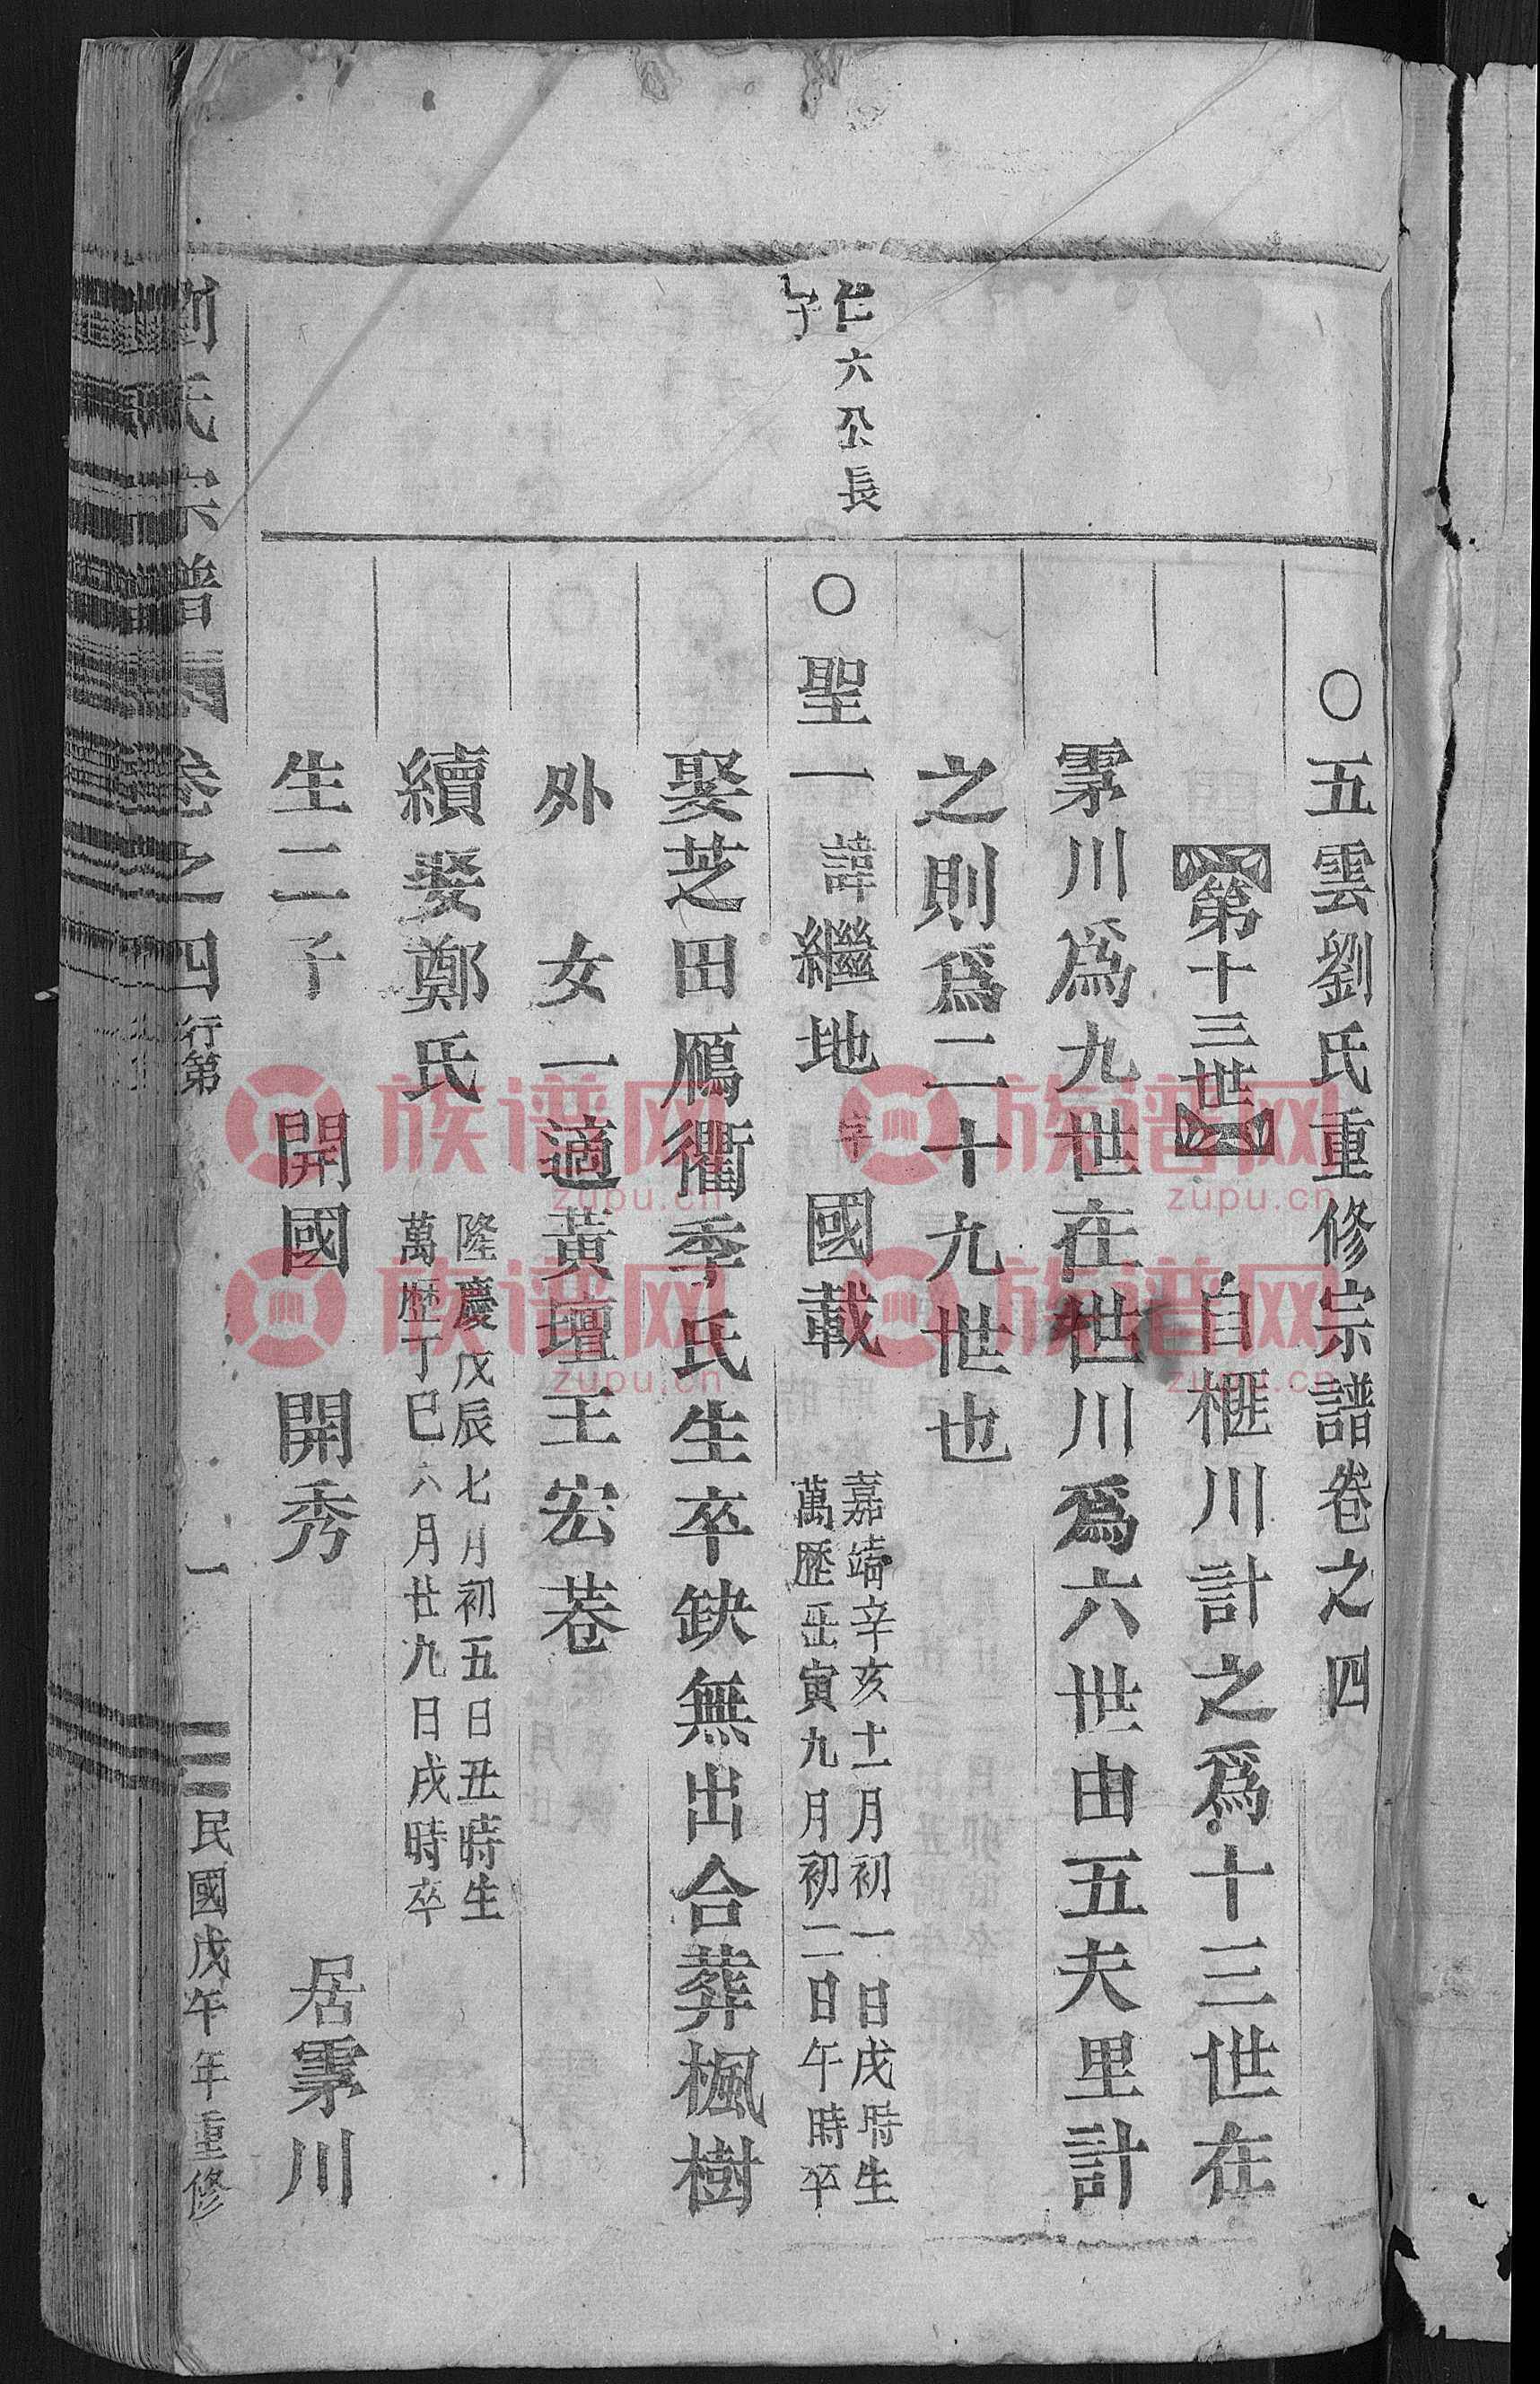 〇五雲劉氏重修宗譜卷之四
第十三世 自榧川計之爲十三世在
雺川爲九世在世川爲六世由五夫里計
之則爲二十九世也
仁六公長
子
〇聖一諱繼地 字 國載 嘉靖辛亥十一月初一日戌時生
萬歷壬寅九月初二日午時卒
娶芝田鴈衢季氏生卒缺無出合葬楓樹
外 女一適黃壇王宏巷
續娶鄭氏 隆慶戊辰七月初五日丑時生
萬歷丁巳六月廿九日戌時卒
生二子 開國 開秀 居雺川
劉氏宗譜 卷之四 行第 一 民國戊午年重修
族谱网
zupu.cn
族谱网
zupu.cn
族谱网
zupu.cn
族谱网
zupu.cn